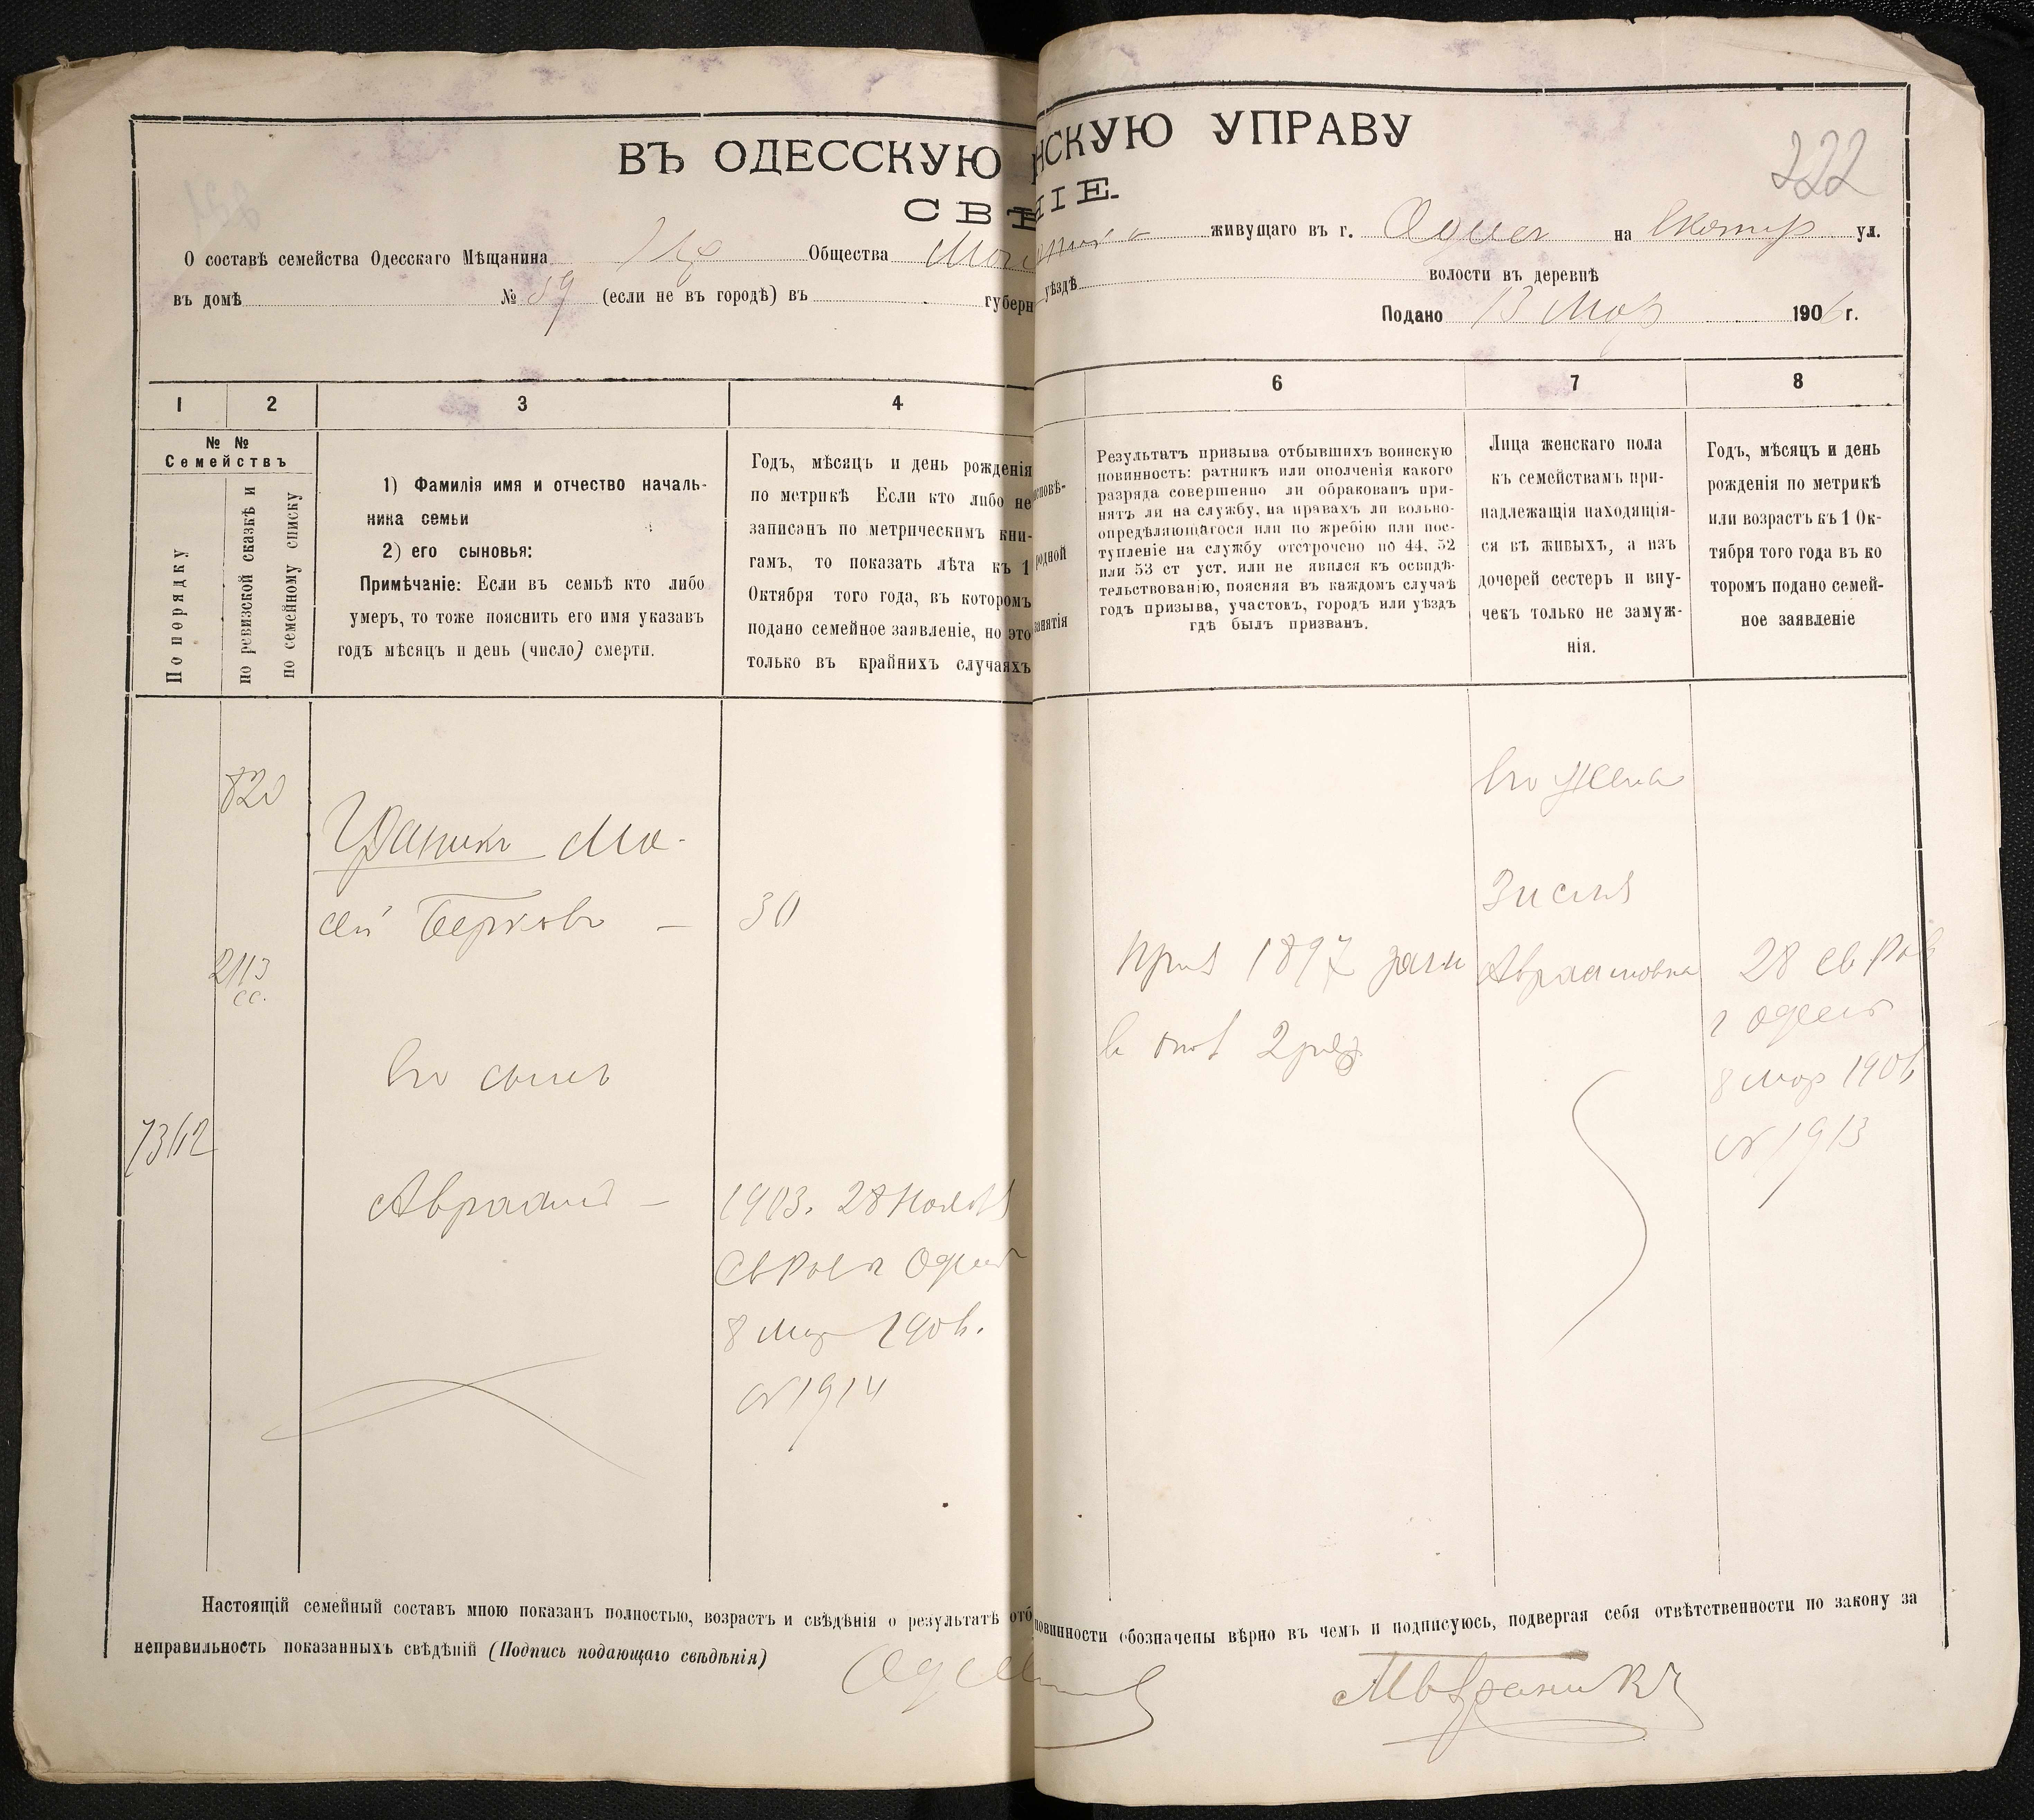 ВЪ ОДЕССКУЮ НСКУЮ УПРАВУ
222
СВѢ НІЕ.
О составѣ семейства Одесскаго Мѣщанина Общества живущаго въ г. на ул.
въ домѣ № 59 (если не въ городѣ) въ губерн уѣздѣ волости въ деревнѣ
Подано 13 Мар 1906 г.
1 2 3 4 6 7 8
№ № Семействъ
По порядку
по ревизской сказкѣ и
по семейному списку
1) Фамилія имя и отчество началь-
ника семьи
2) его сыновья:
Примѣчаніе: Если въ семьѣ кто либо
умеръ, то тоже пояснить его имя указавъ
годъ мѣсяцъ и день (число) смерти.
Годъ, мѣсяцъ и день рожденія
по метрикѣ Если кто либо не
записанъ по метрическимъ кни-
гамъ, то показать лѣта къ 1
Октября того года, въ которомъ
подано семейное заявленіе, но это
только въ крайнихъ случаяхъ
повѣ-
родной
занятія
Результатъ призыва отбывшихъ воинскую
повинность: ратникъ или ополченія какого
разряда совершенно ли обракованъ при-
нятъ ли на службу, на правахъ ли вольно-
опредѣляющагося или по жребію или пос-
тупленіе на службу отсрочено по 44, 52
или 53 ст уст. или не явился къ освидѣ-
тельствованію, поясняя въ каждомъ случаѣ
годъ призыва, участокъ, городъ или уѣздъ
гдѣ былъ призванъ.
Лица женскаго пола
къ семействамъ при-
надлежащія находящія-
ся въ живыхъ, а изъ
дочерей сестеръ и вну-
чекъ только не замуж-
нія.
Годъ, мѣсяцъ и день
рожденія по метрикѣ
или возрастъ къ 1 Ок-
тября того года въ ко
торомъ подано семей-
ное заявленіе
820
Мо-
сей Берковъ — 30
2113
сс.
Его сынъ
7362
Авраамъ — 1903. 28 Нояб
8 мар 1906.
№ 1914
Приз 1897 зачи
в опол 2 раз
Его жена
Зисля
Авраамовна
28
г Одесс
8 мар 1906
№ 1913
Настоящій семейный составъ мною показанъ полностью, возрастъ и свѣдѣнія о результатѣ отб повинности обозначены вѣрно въ чемъ и подписуюсь, подвергая себя отвѣтственности по закону за
неправильность показанныхъ свѣдѣній (Подпись подающаго свѣдѣнія)